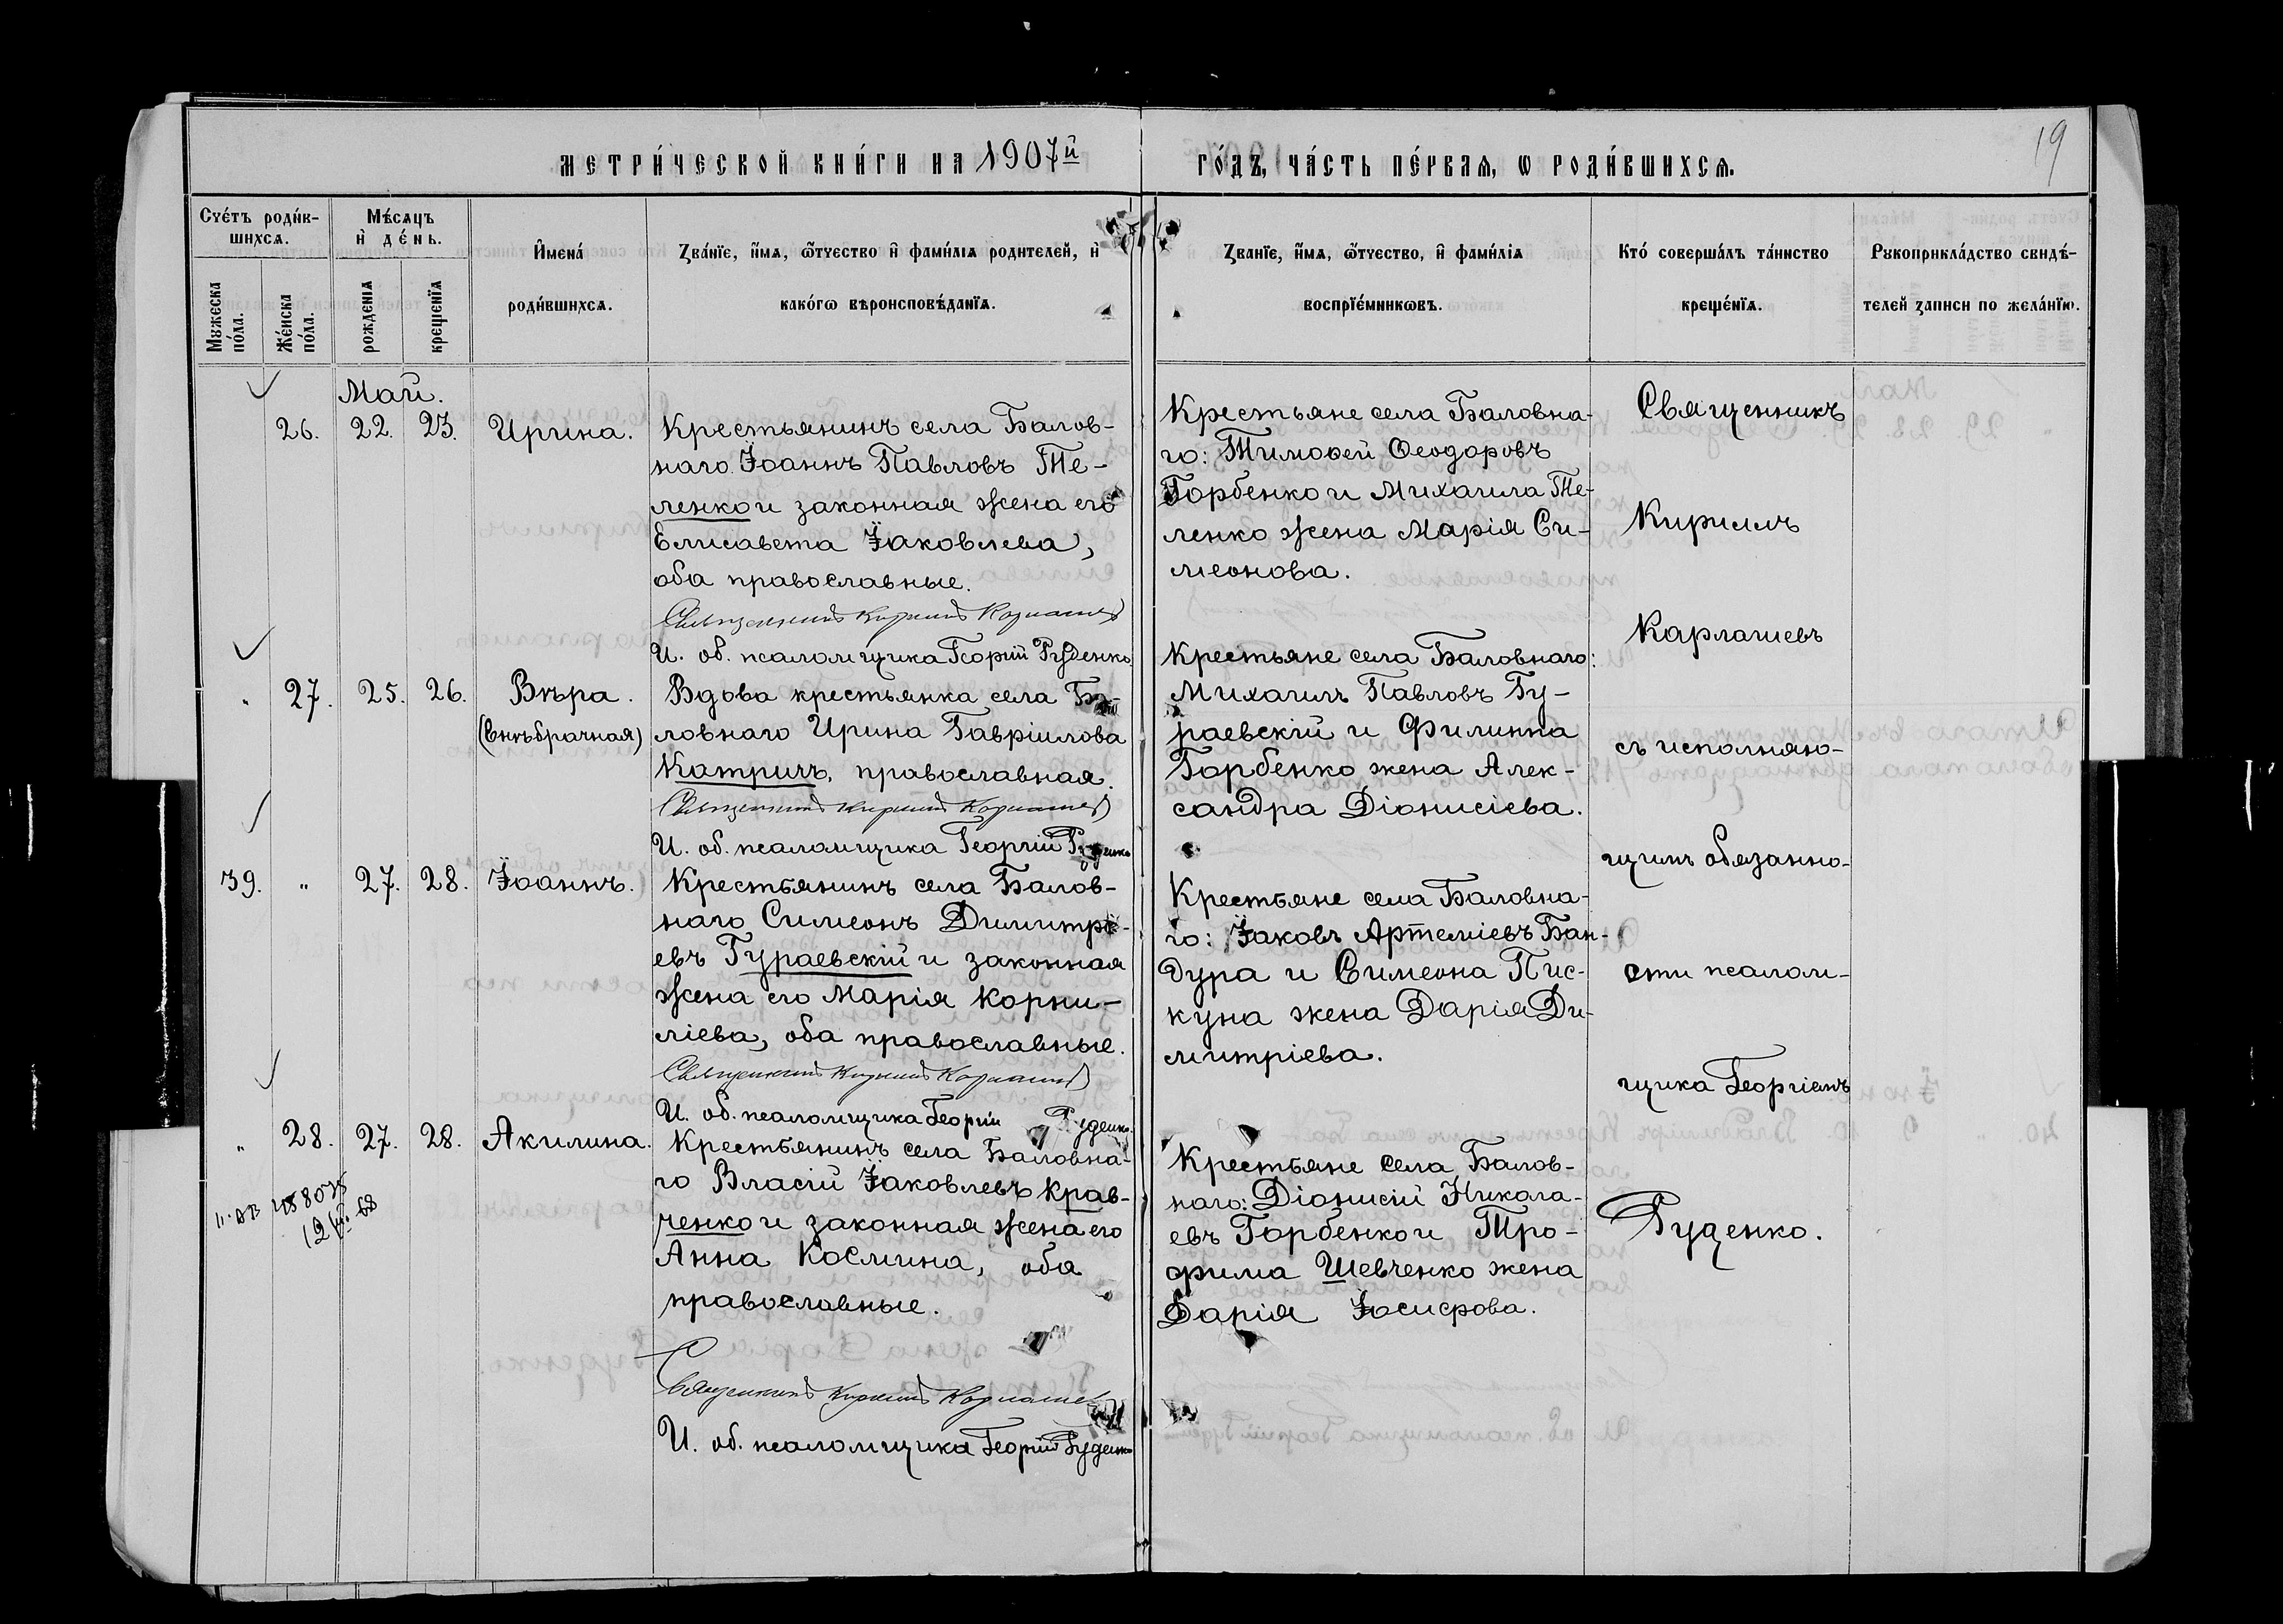 метри́ческой кни́ги на 1907й
го́дъ, ча́сть пе́рвая, ѡ роди́вшихся.
19
Сче́тъ роди́в-
шихся.
Мꙋжеска
по́ла.
Же́нска
по́ла.
Мѣ́сяцъ
и҆ де́нь.
рожденія
крещенїя
И҆мена́
роди́вшихся.
Зва́нїе, и҆́мя, ѻ҆́тчество и҆ фами́лїа родителей, и҆
како́гѡ вѣроисповѣ́данїя.
Зва́нїе, и҆́мя, ѻ҆́тчество, и҆ фами́лїа
воспрїе́мникѡвъ.
Кто́ соверша́лъ та́инство
креще́нїя.
Рꙋкоприкла́дство свидѣ́-
телей записи по жела́нїю.
Май.
26. 22. 23. Ирина.
Крестьянинъ села Балов-
наго Іоаннъ Павловъ Те-
ленко и законная жена его
Елисавета Іаковлева,
оба православные.
Священникъ Кириллъ Карлашевъ
И. об. псаломщика Георгій Руденко
Крестьяне села Баловна-
го: Тимоѳей Ѳеодоровъ
Горбенко и Михаила Те-
ленко жена Марія Си-
меонова.
" 27. 25. 26. Вѣра.
(внѣбрачная)
Вдова крестьянка села Ба-
ловнаго Ирина Гавріилова
Катричъ, православная.
Священникъ Кириллъ Карлашевъ
И. об. псаломщика Георгій Руденко
Крестьяне села Баловнаго:
Михаилъ Павловъ Гу-
раевскій и Филиппа
Горбенко жена Алек-
сандра Діонисіева.
39. " 27. 28. Іоаннъ.
Крестьянинъ села Балов-
наго Симеонъ Димитрі-
евъ Гураевскій и законная
жена его Марія Корни-
ліева, оба православные.
Священникъ Кириллъ Карлашевъ
И. об. псаломщика Георгій Руденко
Крестьяне села Баловна-
го: Іаковъ Артеміевъ Бан-
дура и Симеона Пис-
куна жена Дарія Ди-
митріева.
" 28. 27. 28. Акилина.
Крестьянинъ села Баловна-
го Власій Іаковлевъ Крав-
ченко и законная жена его
Анна Космина, оба
православные.
Священникъ Кириллъ Карлашевъ
И. об. псаломщика Георгій Руденко
Крестьяне села Балов-
наго: Діонисій Никола-
евъ Горбенко и Тро-
фима Шевченко жена
Дарія Іосифова.
Священникъ
Кириллъ
Карлашевъ
съ исполняю-
щимъ обязанно-
сти псалом-
щика Георгіемъ
Руденко.